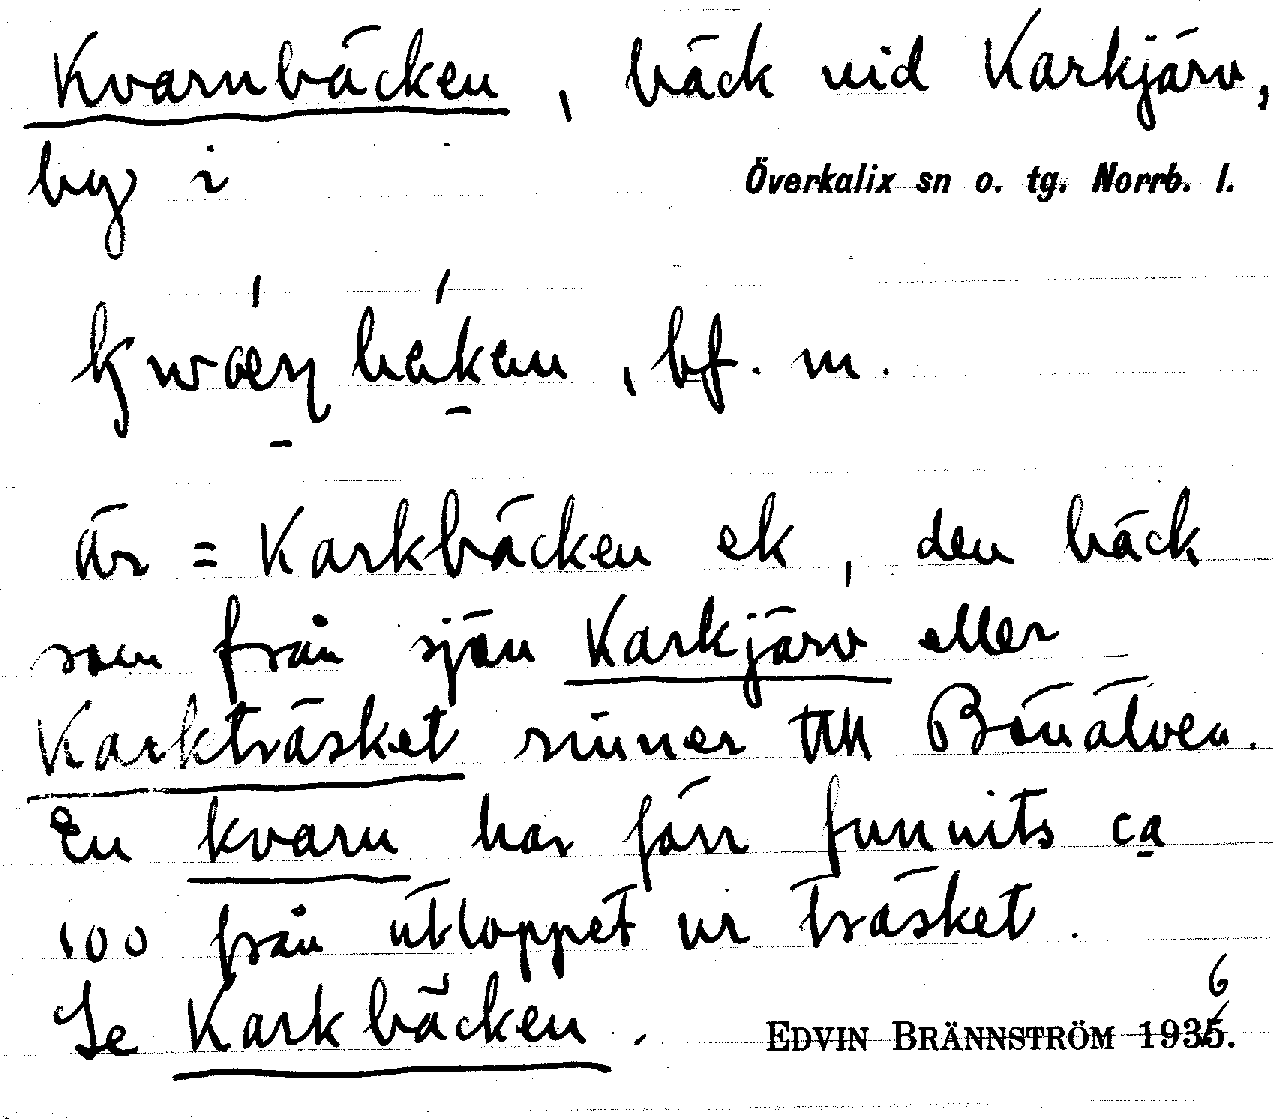 Kvarnbäcken, bäck vid Karkjärv,
by i Överkalix sn o. tg. Norrb. l.
bf. m.
är = Karkbäcken ek, den bäck
som från sjön Karkjärv eller
Karkträsket rinner till Bönälven.
En kvarn har förr funnits ca
100 från utloppet ur träsket.
Se Karkbäcken.
EDVIN BRÄNNSTRÖM 1935.
6